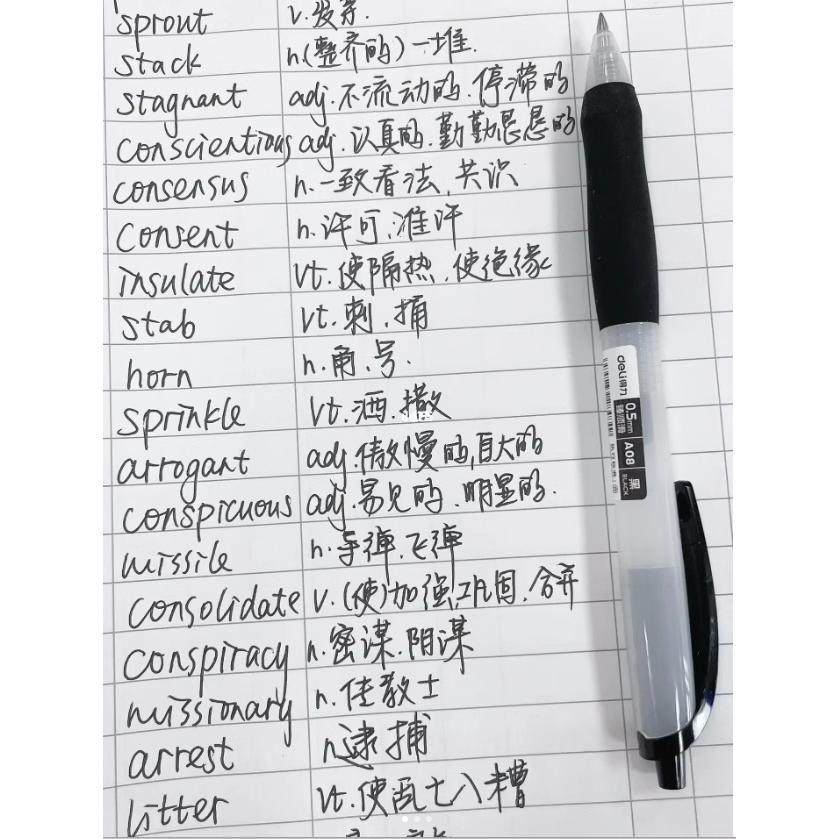 sprout v.发芽.
stack n.(整齐的)一堆.
stagnant adj.不流动的.停滞的
conscientious adj.认真的.勤勤恳恳的
consensus n.一致看法.共识
consent n.许可.准许
insulate vt.使隔热.使绝缘
stab vt.刺.捅
horn n.角.号.
sprinkle vt.洒.撒
arrogant adj.傲慢的,自大的
conspicuous adj.易见的.明显的.
missile n.导弹.飞弹
consolidate v.(使)加强,巩固.合并
conspiracy n.密谋.阴谋
missionary n.传教士
arrest n.逮捕
litter vt.使乱七八糟
deli得力
0.5mm A08 黑
BLACK